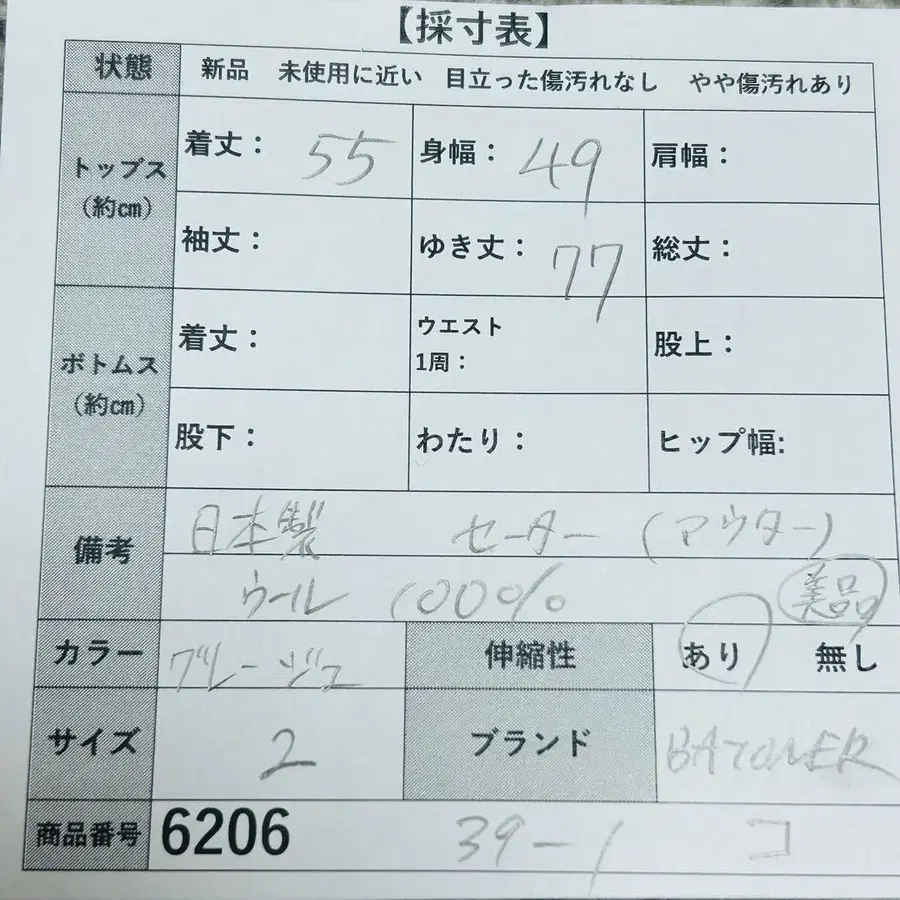 【採寸表】
状態 新品 未使用に近い 目立った傷汚れなし やや傷汚れあり
トップス（約㎝）
着丈： 55 身幅： 49 肩幅：
袖丈： ゆき丈： 77 総丈：
ボトムス（約㎝）
着丈： ウエスト1周： 股上：
股下： わたり： ヒップ幅:
備考 日本製 セーター (アウター)
ウール 100% 美品。
カラー グレージュ 伸縮性 あり 無し
サイズ 2 ブランド BATONER
商品番号 6206 39-1 コ